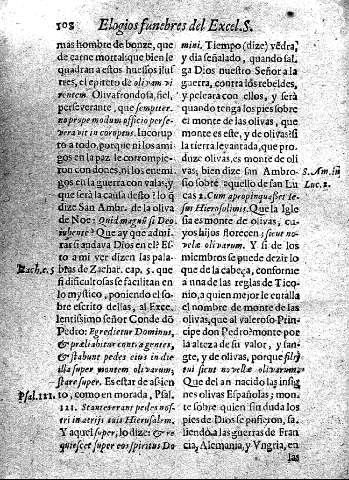 108 Elogios funebres del Excel.S.
mas hombre de bonze, que
de carne mortal: que bien le
quadran a estos huessos ilus
tres, el epiteto de olivam vi
rentem. Oliva frondosa, fiel,
perseverante, que semper ver
na prope modum officio perse-
verat in corpus. Incorup
to a todo, porque ni los ami
gos en la paz le corrompie-
ron con dones, ni los enemi
gos en la guerra con valas; y
que será la causa desso? lo q̃
dize San Ambr. de la oliva
de Noe: Quid magni si Deo
Que ay que admi-
rar si andava Dios en el? Es-
to a mi ver dizen las pala-
bras de Zachar. cap. 5. que
sificultosas se facilitan en
lo mystico, poniendo el so-
bre escrito dellas, al Exce-
lentissimo señor Conde dõ
Pedro: Egredietur Dominus,
& præliabitur contra gentes,
& stabunt pedes eius in die
illa super montem olivarum,
stare super. Es estar de asien
to, como en morada, Psal.
121. Stantes erant pedes nos-
tri in atrijs tuis Hierusalem.
Y aquel super, lo dize: & re
quiescet super eos spiritus Do
Zach. c. 5
Psal. 121.
mini. Tiempo (dize) vẽdra,
y dia señalado, quando sal-
ga Dios nuestro Señor a la
guerra, contra los rebeldes,
y peleara con ellos, y será
quando tenga los pies sobre
el monte de las olivas, que
monte es este, y de olivas: si
la tierra levantada, que pro-
duze olivas, es monte de oli
vas; bien dize san Ambro-
sio sobre aquello de san Lu
cas 2. Cum apropinquasset Ie-
sus Hierosolimis. Que la Igle
sia es monte de olivas, cu-
yos hijos florecen: sicut no-
velæ olivarum. Y si de los
miembros se puede dezir lo
que de la cabeça, conforme
a vna de las reglas de Tico-
nio, a quien mejor le entalla
el nombre de monte de las
olivas, que al valeroso Prin-
cipe don Pedro? monte por
la alteza de su valor, y san-
gre, y de olivas, porque filij
tui sicut novellæ olivarum.
Que del an nacido las insig
nes olivas Españolas; mon-
te sobre quien sin duda los
pies de Dios se pusieron, sa-
liendo a las guerras de Fran
cia, Alemania, y Vngria, en
las
S. Am. in
Luc. 2.